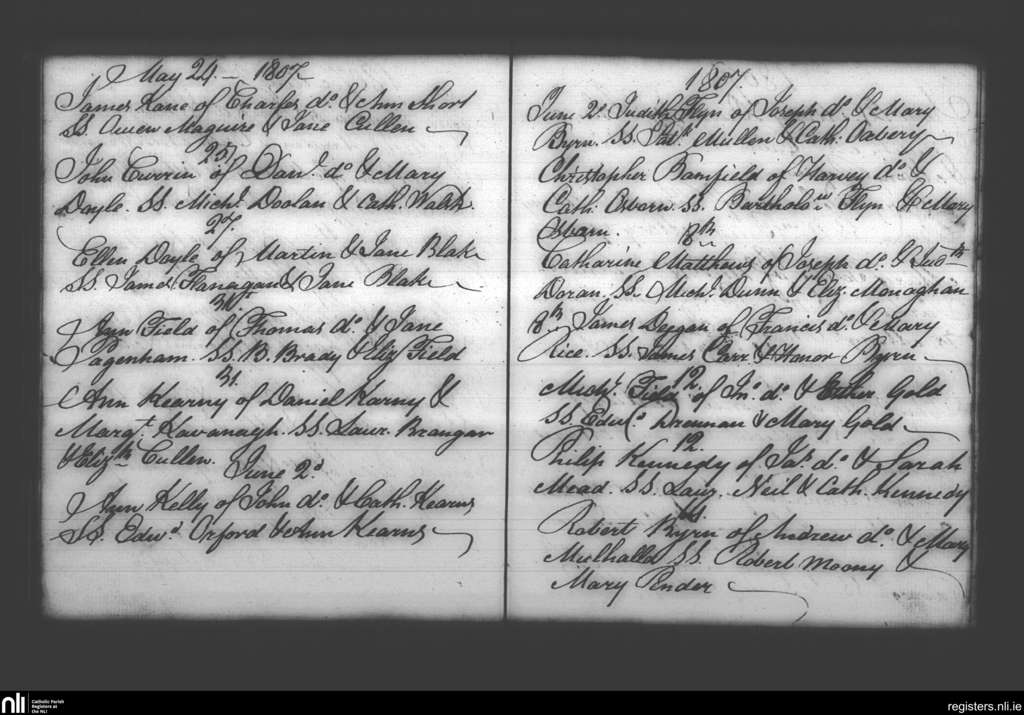 May 24 – 1807
James Kane of Charles do. & Ann Short
SS. Owen Maguire & Jane Cullen
25
John Currin of Danl. do. & Mary
Doyle. SS. Michl. Doolan & Cath. Walsh.
27.
Ellen Doyle of Martin & Jane Blake
SS. James Flanagan & Jane Blake
31st
Ann Field of Thomas do. & Jane
Pagenham. SS. B. Brady & Eliz Field
31.
Ann Kearny of Daniel Karny &
Margt. Kavanagh. SS. Laur. Brangan
& Elizth Cullen. June 2d
Ann Kelly of John do. & Cath. Kearns
SS. Edwd. Orford & Ann Kearns
1807
June 2d. Judith Flyn of Joseph do. & Mary
Byrn. SS. Mullen & Cath.
Christopher Bamfield of Harvey do. &
Cath. Osborn. SS. Bartholow Flyn & Mary
Osbarn. 8th
Catharine Matthews of Joseph do. & Judth
Doran. SS. Michl. Dunn & Eliz. Monaghan
8th James Deegan of Francis do. & Mary
Rice. SS. James Carr & Honor Byrn
12
Michl. Field of Jno. do. & Esther Gold
SS Edwd. Drennan & Mary Gold
12.
Philip Kennedy of Jas. do. & Sarah
Mead. SS. Laur. Neil & Cath. Kennedy
14
Robert Byrn of Andrew do. & Mary
Mulhalld SS. Robert Moony &
Mary Pender
nli
Catholic Parish
Registers at
the NLI
registers.nli.ie